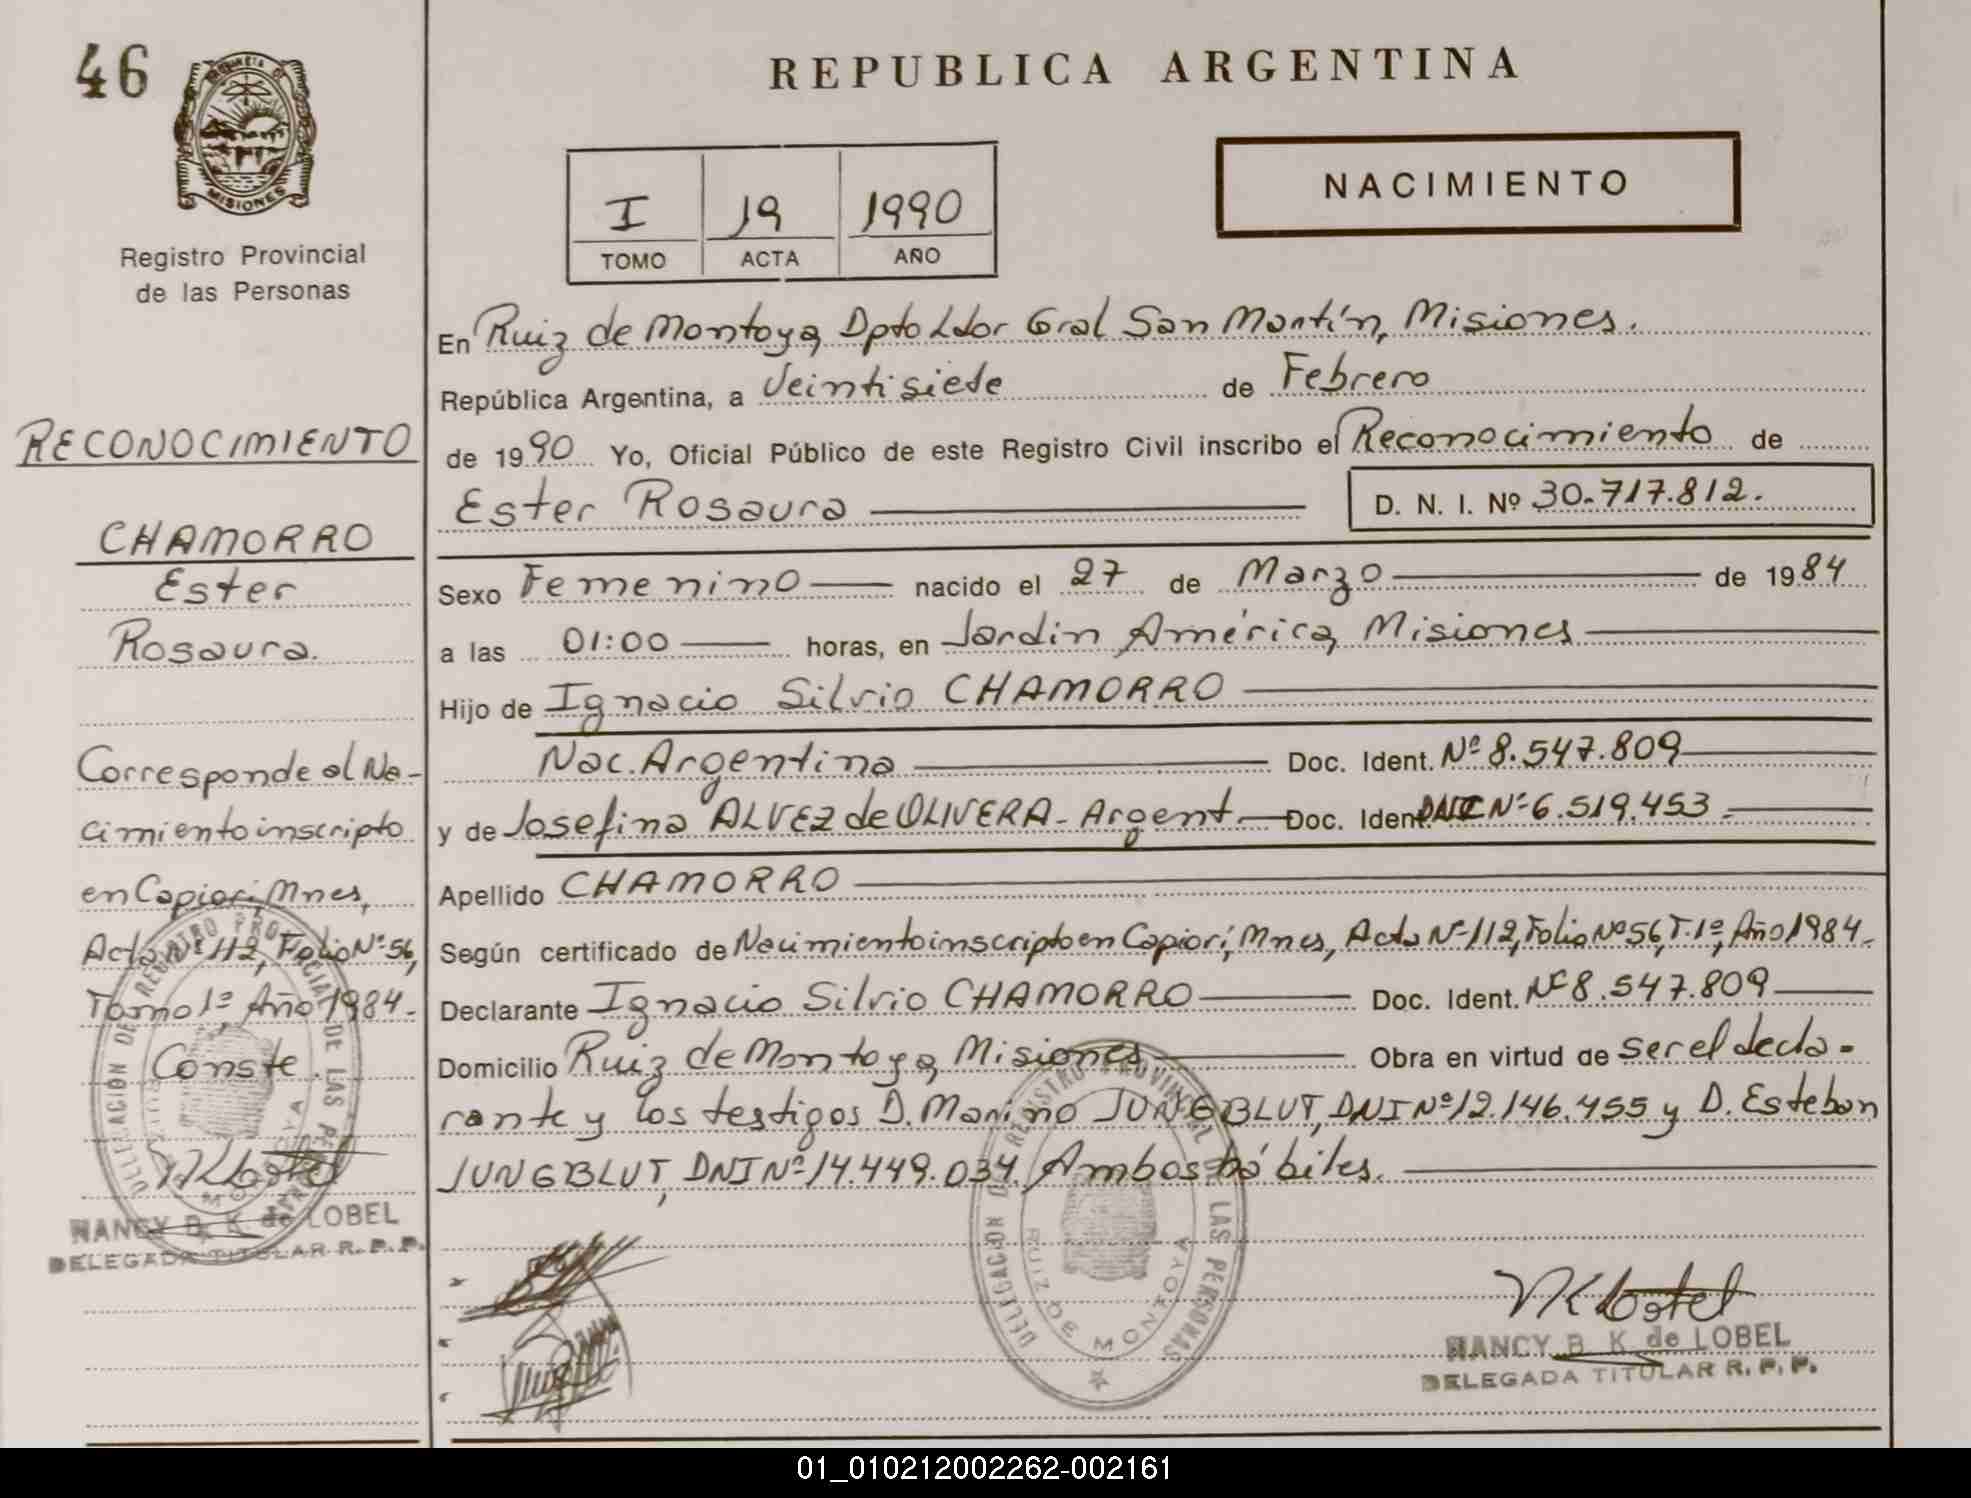 46
PROVINCIA DE
MISIONES
Registro Provincial
de las Personas
RECONOCIMIENTO
CHAMORRO
Ester
Rosaura.
Corresponde al Na-
cimiento inscripto
en Capiovi, Mnes,
Acta Nº 112, Folio Nº 56,
Tomo 1º, Año 1984.-
Conste.
DELEGACION DE REGISTRO PROVINCIAL DE LAS PERSONAS
RUIZ DE MONTOYA
NANCY B. K. de LOBEL
DELEGADA TITULAR R. P. P.
REPUBLICA ARGENTINA
I 19 1990
TOMO ACTA AÑO
NACIMIENTO
En Ruiz de Montoya, Dpto Ldor Gral San Martín, Misiones.
República Argentina, a Veintisiete de Febrero
de 1990 Yo, Oficial Público de este Registro Civil inscribo el Reconocimiento de
Ester Rosaura D. N. I. Nº 30.717.812.
Sexo Femenino nacido el 27 de Marzo de 1984
a las 01:00 horas, en Jardin América, Misiones
Hijo de Ignacio Silvio CHAMORRO
Nac. Argentina Doc. Ident. Nº 8.547.809
y de Josefina ALVEZ de OLIVERA - Argent. Doc. Ident. DNI Nº 6.519.453
Apellido CHAMORRO
Según certificado de Nacimiento inscripto en Capiovi, Mnes, Acta Nº 112, Folio Nº 56, T. 1º, Año 1984.
Declarante Ignacio Silvio CHAMORRO Doc. Ident. Nº 8.547.809
Domicilio Ruiz de Montoya, Misiones Obra en virtud de ser el decla-
rante y los testigos D. Marino JUNGBLUT, DNI Nº 12.146.455 y D. Esteban
JUNGBLUT, DNI Nº 14.449.034. Ambos hábiles.
DELEGACION DE REGISTRO PROVINCIAL DE LAS PERSONAS
RUIZ DE MONTOYA
NANCY B. K. de LOBEL
DELEGADA TITULAR R. P. P.
01_010212002262-002161